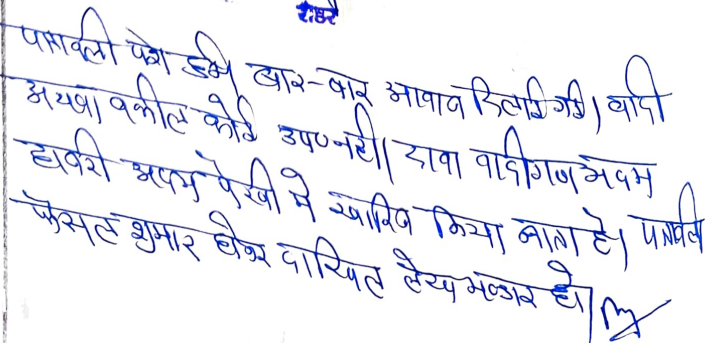 पत्रावली पेश हुई। बार-बार आवाज दिलाई गई। वादी
अथवा वकील कोई उप० नहीं। दावा वादीगण अदम
हाजरी अदम पैरवी में खारिज किया जाता है। पत्रावली
फैसल शुमार होकर दाखिल लेख भण्डार हो।